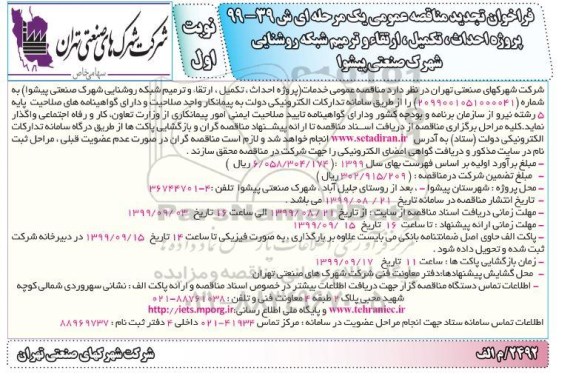 فراخوان تجدید مناقصه عمومی یک مرحله ای ش ۳۹-۹۹
پروژه احداث، تکمیل، ارتقاء و ترمیم شبکه روشنایی
شهرک صنعتی پیشوا
نوبت
اول
شرکت شهرکهای صنعتی تهران
سهامی خاص
شرکت شهرکهای صنعتی تهران در نظر دارد مناقصه عمومی خدمات(پروژه احداث ، تکمیل ، ارتقاء و ترمیم شبکه روشنایی شهرک صنعتی پیشوا) به
شماره (۲۰۹۹۰۰۱۰۵۱۰۰۰۰۴۱) را از طریق سامانه تدارکات الکترونیکی دولت به پیمانکار واجد صلاحیت و دارای گواهینامه های صلاحیت پایه
۵ رشته نیرو از سازمان برنامه و بودجه کشور ودارای گواهینامه تایید صلاحیت ایمنی امور پیمانکاری از وزارت تعاون، کار و رفاه اجتماعی واگذار
نماید.کلیه مراحل برگزاری مناقصه از دریافت اسناد مناقصه تا ارائه پیشنهاد مناقصه گران و بازگشایی پاکت ها از طریق درگاه سامانه تدارکات
الکترونیکی دولت (ستاد) به آدرس www.setadiran.ir انجام خواهد شد و لازم است مناقصه گران در صورت عدم عضویت قبلی، مراحل ثبت
نام در سایت مذکور و دریافت گواهی امضای الکترونیکی را جهت شرکت در مناقصه محقق سازند .
- مبلغ برآورد اولیه بر اساس فهرست بهای سال ۱۳۹۹ : (۶/۰۵۸/۳۰۴/۱۷۴ ریال )
- مبلغ تضمین شرکت درمناقصه : (۳۰۲/۹۱۵/۲۰۹ ریال)
- محل پروژه : شهرستان پیشوا - . بعد از روستای جلیل آباد ، شهرک صنعتی پیشوا تلفن :۴-۳۶۷۴۴۷۰۱
- تاریخ انتشار مناقصه در سامانه تاریخ ۲۱ / ۰۸ / ۱۳۹۹ می باشد .
- مهلت زمانی دریافت اسناد مناقصه از سایت : از تاریخ ۲۱ / ۰۸ / ۱۳۹۹ الی ساعت ۱۶ تاریخ ۱۳۹۹/۰۹/۰۳
- مهلت زمانی ارائه پیشنهاد : تا ساعت ۱۶ تاریخ ۱۵ / ۰۹ / ۱۳۹۹
- پاکت الف حاوی اصل ضمانتنامه بانکی می بایست علاوه بر بارگذاری ، به صورت فیزیکی تا ساعت ۱۴ تاریخ ۱۳۹۹/۰۹/۱۵ در دبیرخانه شرکت
ثبت شده و تحویل داده شود .
- زمان بازگشایی پاکت ها : ساعت ۱۱ تاریخ ۱۳۹۹/۰۹/۱۷
- محل گشایش پیشنهادها:دفتر معاونت فنی شرکت شهرک های صنعتی تهران
- اطلاعات تماس دستگاه مناقصه گزار جهت دریافت اطلاعات بیشتر در خصوص اسناد مناقصه و ارائه پاکت الف : نشانی سهروردی شمالی کوچه
شهید محبی پلاک ۲ طبقه ۲ معاونت فنی و تلفن : ۸۸۷۶۱۰۳۸-۰۲۱
www.tehraniec.ir و پایگاه ملی اطلاع رسانی:http://iets.mporg.ir
اطلاعات تماس سامانه ستاد جهت انجام مراحل عضویت در سامانه : مرکز تماس ۴۱۹۳۴-۰۲۱ داخلی ۴ دفتر ثبت نام : ۸۸۹۶۹۷۳۷
۲۴۹۲/م الف
شرکت شهرکهای صنعتی تهران